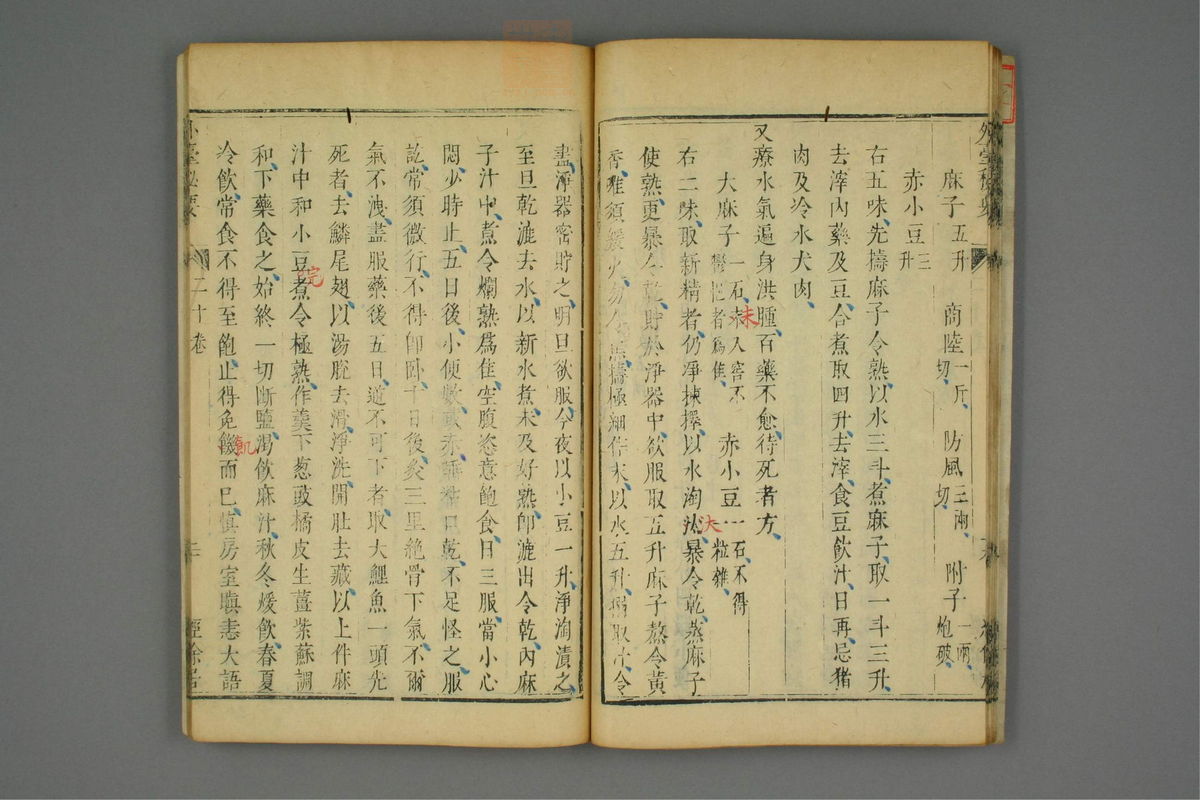 麻子五升 商陸一斤切 防風三兩切 附子一兩炮破
赤小豆三升
右五味先擣麻子令熟以水三斗煮麻子取一斗三升
去滓內藥及豆合煮取四升去滓食豆飲汁日再忌猪
肉及冷水犬肉
又療水氣遍身洪腫百藥不愈待死者方
大麻子一石未入窖不鬱悒者為佳 赤小豆一石不得一粒雜
右二味取新精者仍凈揀擇以水淘汰暴令乾蒸麻子
使熟更暴令乾貯於淨器中欲服取五升麻子熬令黃
香惟須緩火勿令焦擣極細作末以水五升搦取汁令
盡淨器密貯之明旦欲服今夜以小豆一升淨淘漬之
至旦乾漉去水以新水煮未及好熟即漉出令乾內麻
子汁中煮令爛熟為佳空腹恣意飽食日三服當小心
悶少時止五日後小便數或赤唾粘口乾不足怪之服
訖常須微行不得即卧十日後灸三里絕骨下氣不爾
氣不洩盡服藥後五日逆不可下者取大鯉魚一頭先
死者去鱗尾翅以湯脫去滑淨洗開肚去藏以上件麻
汁中和小豆煮令極熟作羹下葱豉橘皮生薑紫蘇調
和下藥食之始終一切斷鹽渴飲麻汁秋冬煖飲春夏
冷飲常食不得至飽止得免饑而已慎房室瞋恚大語
外臺秘要
二十卷
經餘居
末
汰
完
飢